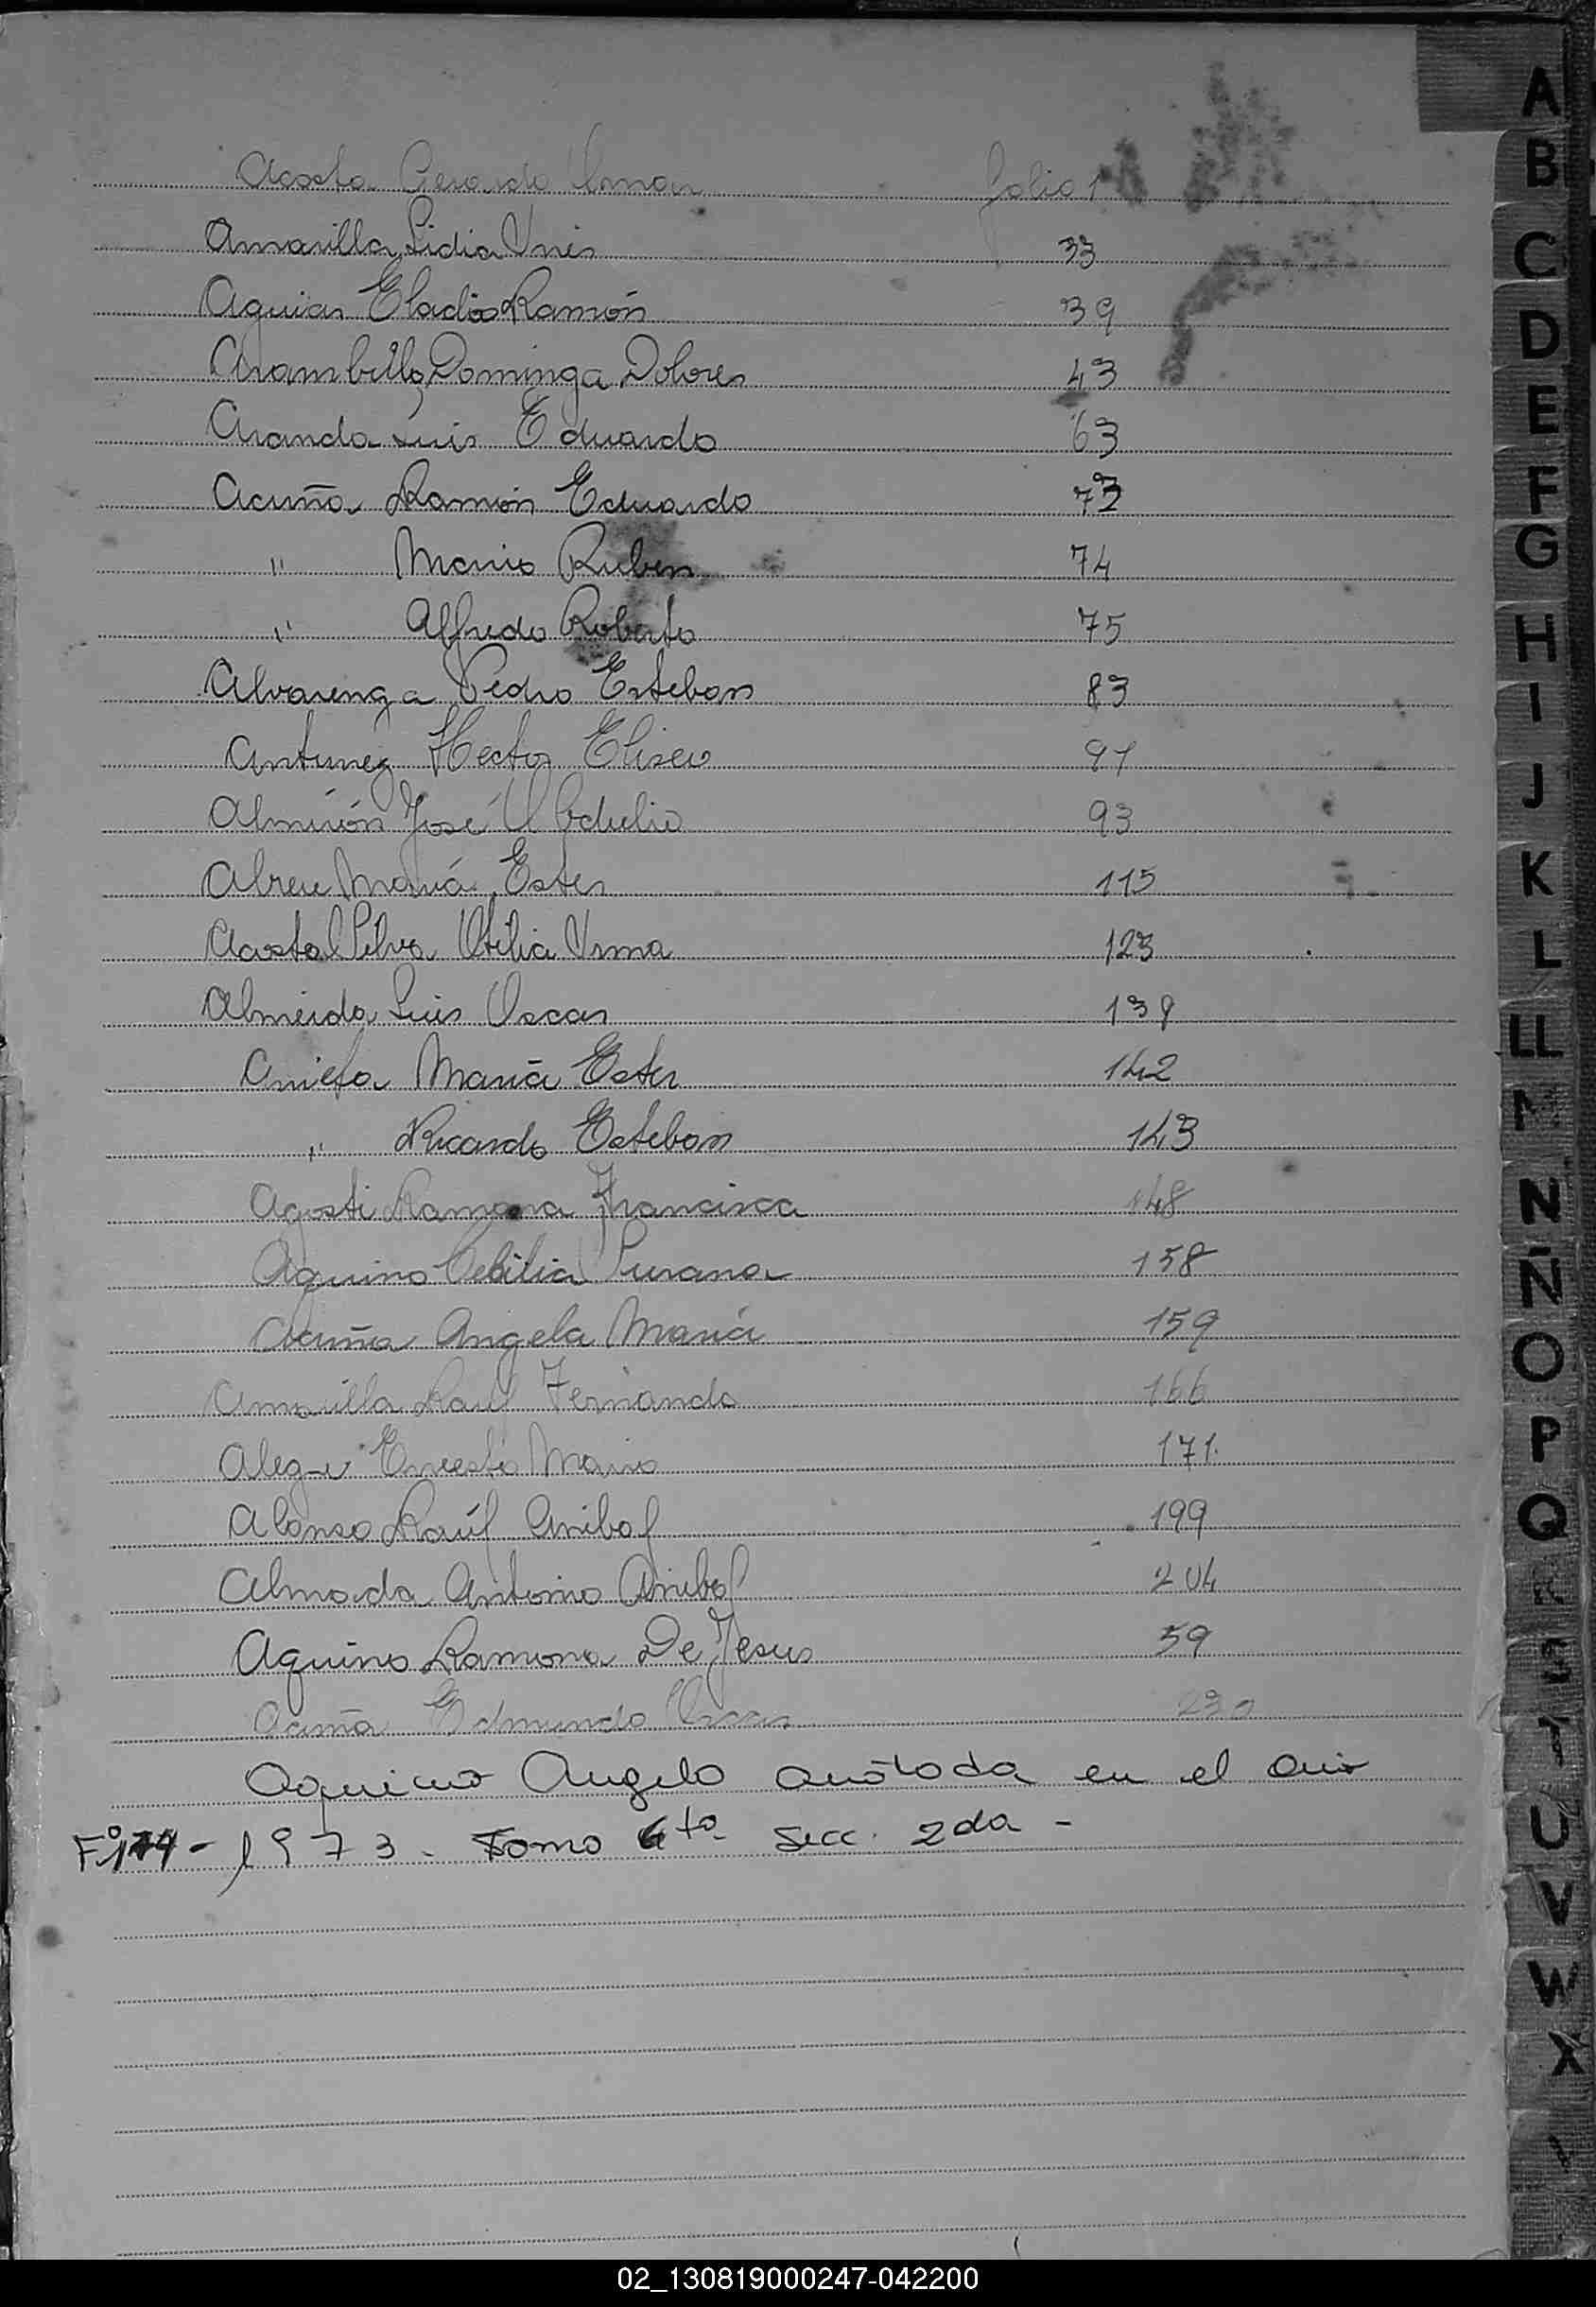 Acosta Gerardo Omar folio 1
Amarilla Lidia Ines 33
Aguiar Eladio Ramón 39
Arambillo Dominga Dolores 43
Aranda Luis Eduardo 63
Acuña Ramón Eduardo 73
" Mario Ruben 74
" Alfredo Roberto 75
Alvarenga Pedro Esteban 83
Antunez Hector Eliseo 91
Almirón José 93
Abreu María Ester 115
Acosta Silva Otilia Irma 123
Almeida Luis Oscar 139
María Ester 142
" Ricardo Esteban 143
Agosti Ramona Francisca 148
Aquino Cebilia Susana 158
Acuña Angela María 159
Amarilla Raul Fernando 166
Alegre Ernesto Mario 171
Alonso Raúl Anibal 199
Almada Antonio Anibal 204
Aquino Ramona De Jesus 59
Acuña Edmundo Oscar 230
Aquino Angela anotada en el año
1973. Tomo 6to secc. 2da -
A
B
C
D
E
F
G
H
I
J
K
L
LL
M
N
Ñ
O
P
Q
R
T
U
V
W
X
02_130819000247-042200